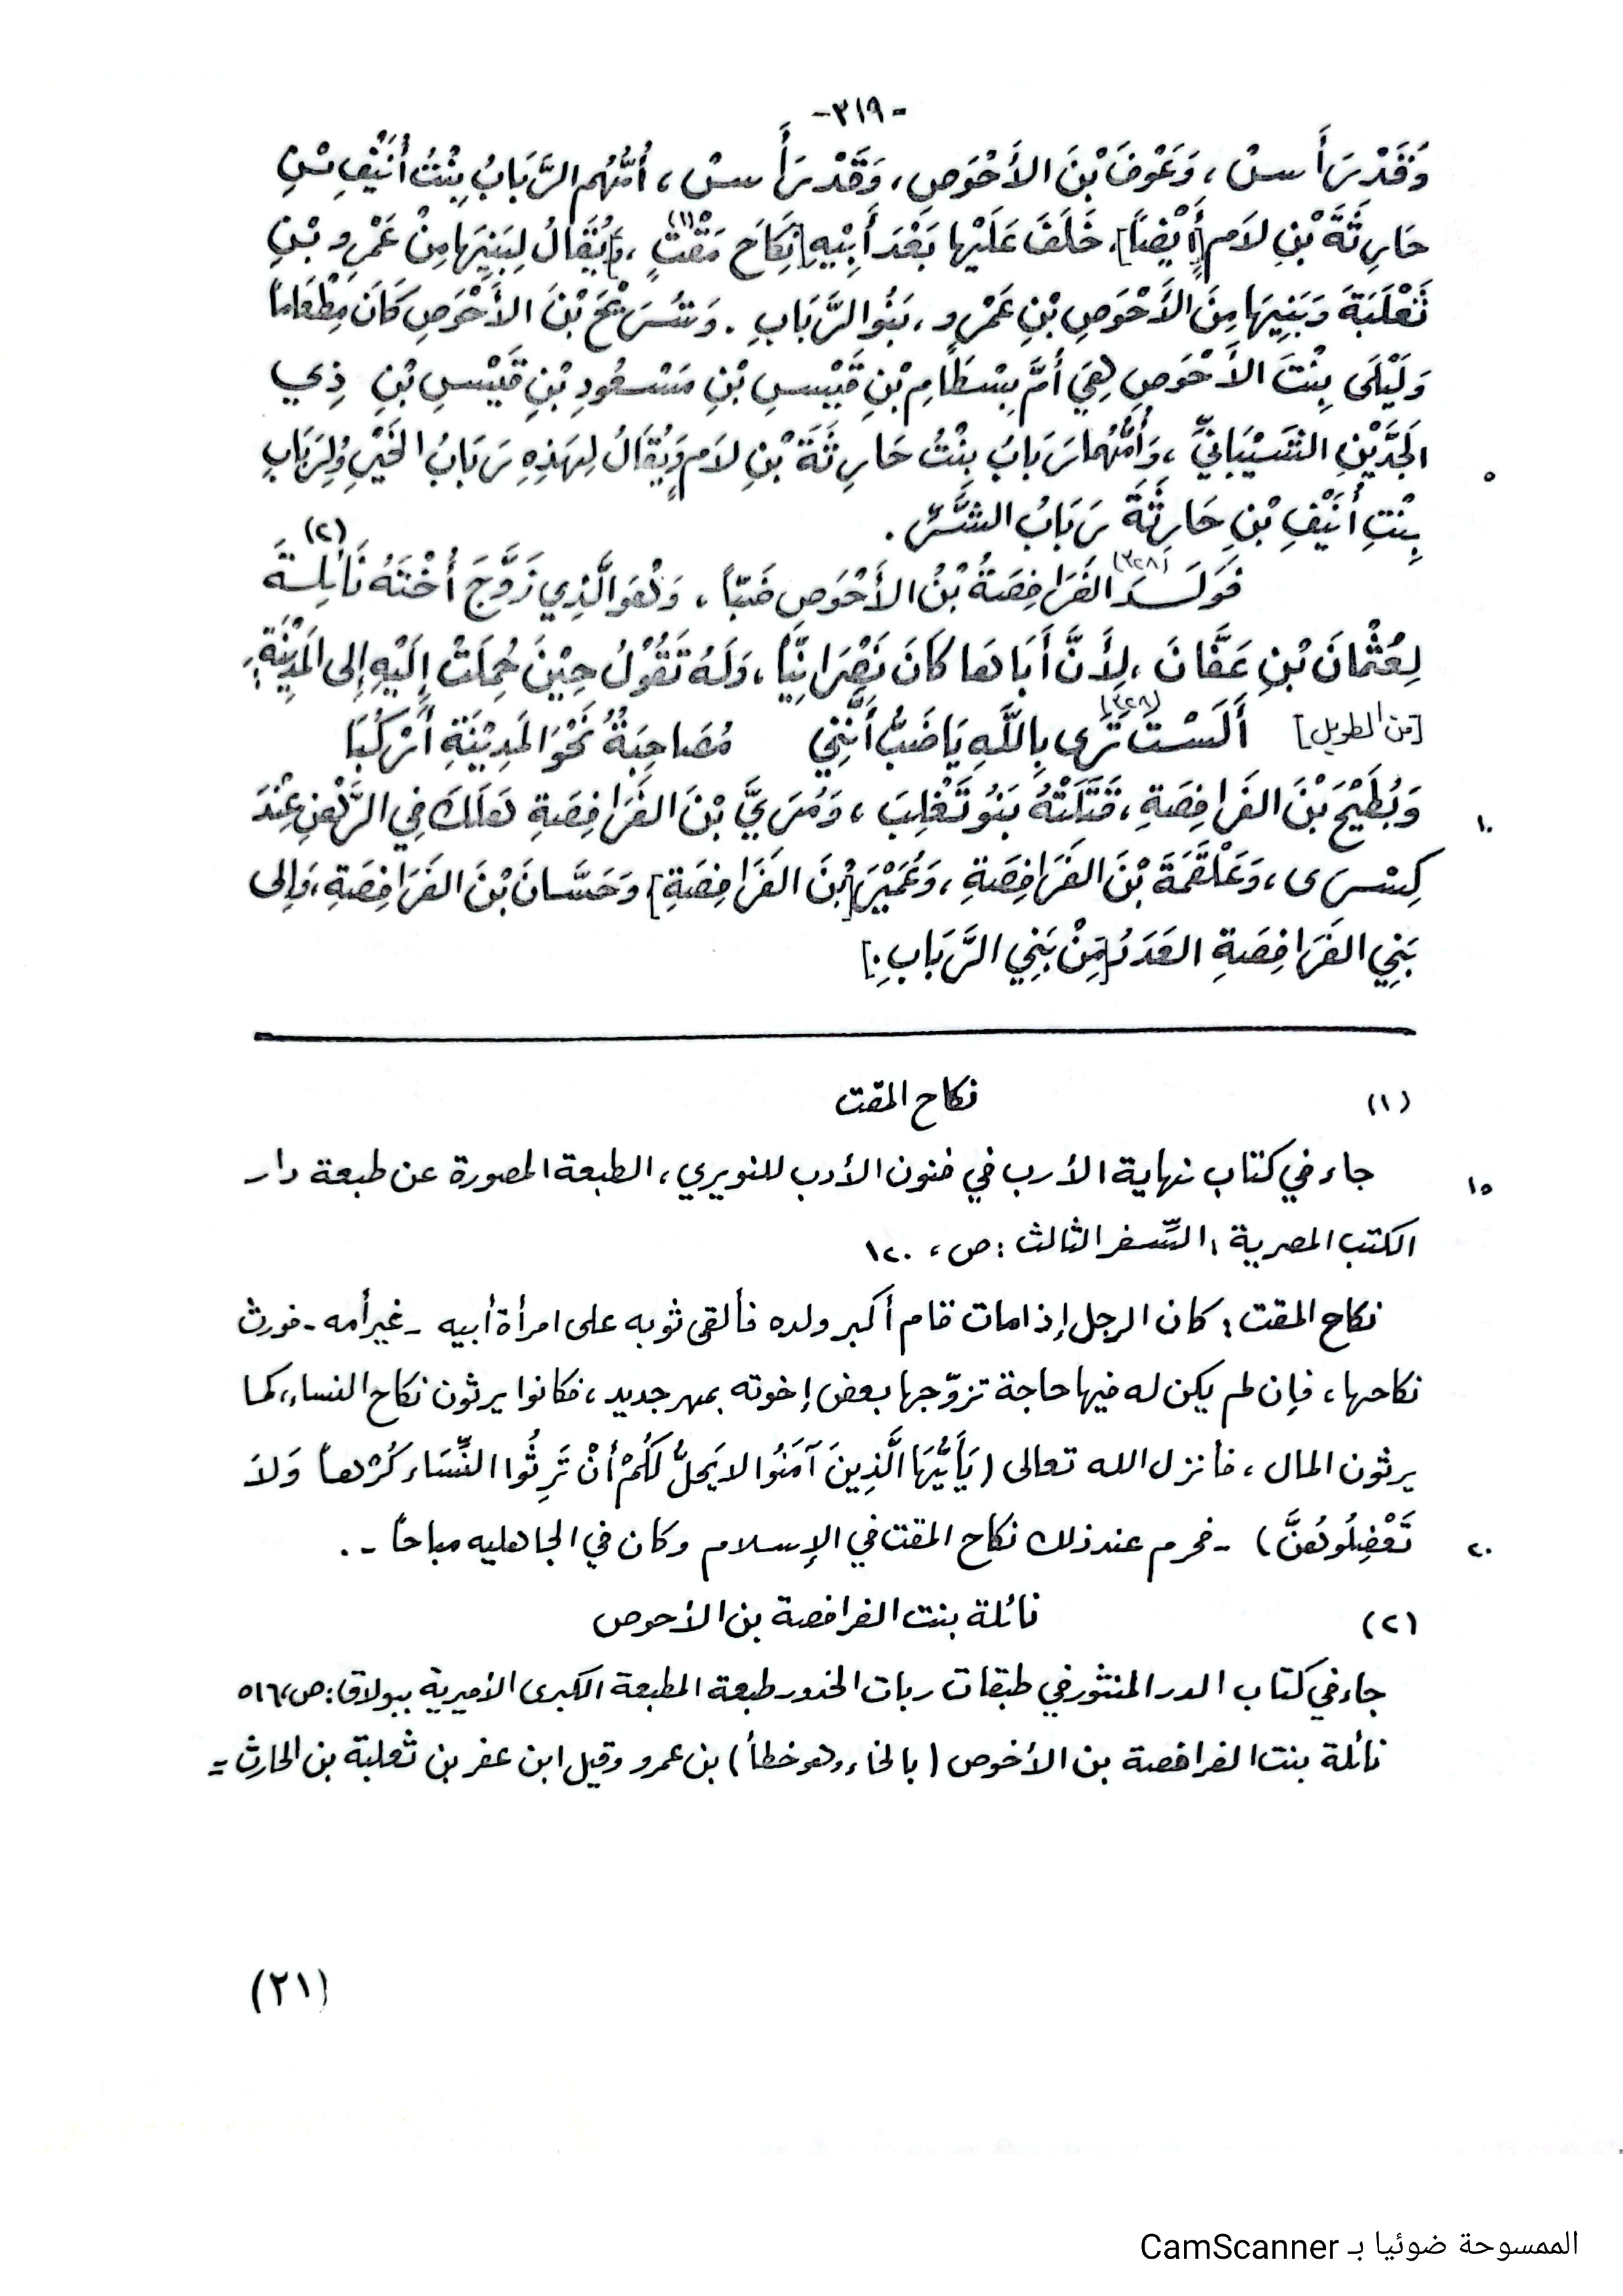 -٣١٩-
وَقَدْ رَأَسَ، وَعَوْفَ بْنَ الأَحْوَصِ، وَقَدْ رَأَسَ، أُمُّهُم الرَّبَابُ بِنْتُ أُنَيْفِ بْنِ
حَارِثَةَ بْنِ لَامٍ [أَيْضاً]، خَلَفَ عَلَيْها بَعْدَ أَبِيْهِ [نِكَاحَ مَقْتٍ (١)، وَ]يُقَالُ لِبَنِيْهَا مِنْ عَمْرِو بْنِ
ثَعْلَبَةَ وَبَنِيهَا مِنَ الأَحْوَصِ بْنِ عَمْرٍو، بَنُو الرَّبَابِ. وَشُرَيْحَ بْنَ الأَحْوَصِ كَانَ مِطْعَاماً
وَلَيْلَى بِنْتَ الأَحْوَصِ هِيَ أُمُّ بِسْطَامِ بْنِ قَيْسِ بْنِ مَسْعُودِ بْنِ قَيْسِ بْنِ ذِي
الجَدَّيْنِ الشَّيْبَانِيِّ، وَأُمُّهُما رَبَابُ بِنْتُ حَارِثَةَ بْنِ لَامٍ وَيُقَالُ لِهَذِهِ رَبَابُ الخَيْرِ وَلِرَبَابِ
٥
بِنْتِ أُنَيْفِ بْنِ حَارِثَةَ رَبَابُ الشَّرِّ.
فَوَلَدَ (٣٢٨) الفَرَافِصَةُ بْنُ الأَحْوَصِ ضَبّاً، وَهُوَ الَّذِي زَوَّجَ أُخْتَهُ نَائِلَةَ (٢)
لِعُثْمَانَ بْنِ عَفَّانَ، لِأَنَّ أَبَاهَا كَانَ نَصْرَانِيّاً، وَلَهُ تَقُوْلُ حِيْنَ حُمِلَتْ إِلَيْهِ إِلى المَدِيْنَةِ:
[من الطويل] أَلَسْتَ تَرَى (٣٢٨) بِاللَّهِ يَا ضَبُّ أَنَّنِي مُصَاحِبَةٌ نَحْوَ المَدِيْنَةِ أَرْكُبَا
وَبُطَيْحَ بْنَ الفَرَافِصَةِ، قَتَلَتْهُ بَنُو تَغْلِبَ، وَمُرَيَّ بْنَ الفَرَافِصَةِ هَلَكَ فِي الرَّهْنِ عِنْدَ
١٠
كِسْرَى، وَعَلْقَمَةَ بْنَ الفَرَافِصَةِ، وَعُمَيْرَ [بْنَ الفَرَافِصَةِ] وَحَسَّانَ بْنَ الفَرَافِصَةِ، وَإِلى
بَنِي الفَرَافِصَةِ العَدَدُ [مِنْ بَنِي الرَّبَابِ.]
(١) نكاح المقت
جاء في كتاب نهاية الأرب في فنون الأدب للنويري، الطبعة المصورة عن طبعة دار
١٥
الكتب المصرية: السِّفر الثالث: ص، ١٢٠
نكاح المقت: كان الرجل إذا مات قام أكبر ولده فألقى ثوبه على امرأة أبيه - غير أمه - فورث
نكاحها، فإن لم يكن له فيها حاجة تزوّجها بعض إخوته بمهر جديد، فكانوا يرثون نكاح النساء، كما
يرثون المال، فأنزل الله تعالى (يَأَيُّهَا الَّذِينَ آمَنُوا لا يَحِلُّ لَكُمْ أَنْ تَرِثُوا النِّسَاء كُرْهاً وَلاَ
تَعْضِلُوهُنَّ) - فحرم عند ذلك نكاح المقت في الإسلام وكان في الجاهليه مباحاً -.
٢٠
(٢) نائلة بنت الفرافصة بن الأحوص
جاء في كتاب الدر المنثور في طبقات ربات الخدور طبعة المطبعة الكبرى الأميرية ببولاق: ص، ٥١٦
نائلة بنت الفرافصة بن الأخوص (بالخاء وهو خطأ) بن عمرو وقيل ابن عفر بن ثعلبة بن الحارث =
(٢١)
الممسوحة ضوئيا بـ CamScanner